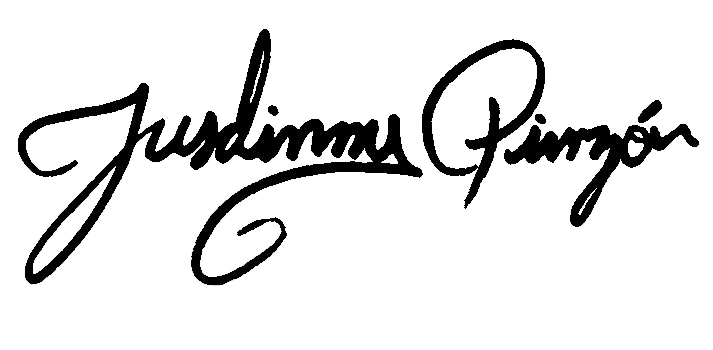 Jusdinmy Pinzón